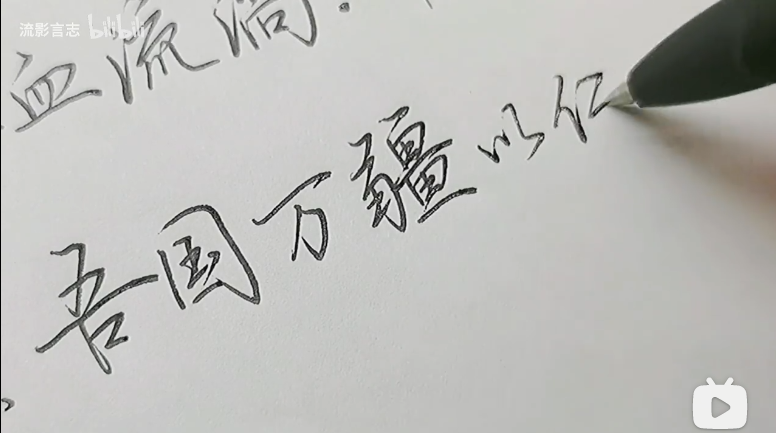 流影言志 bilibili
血流淌.
吾国万疆以仁